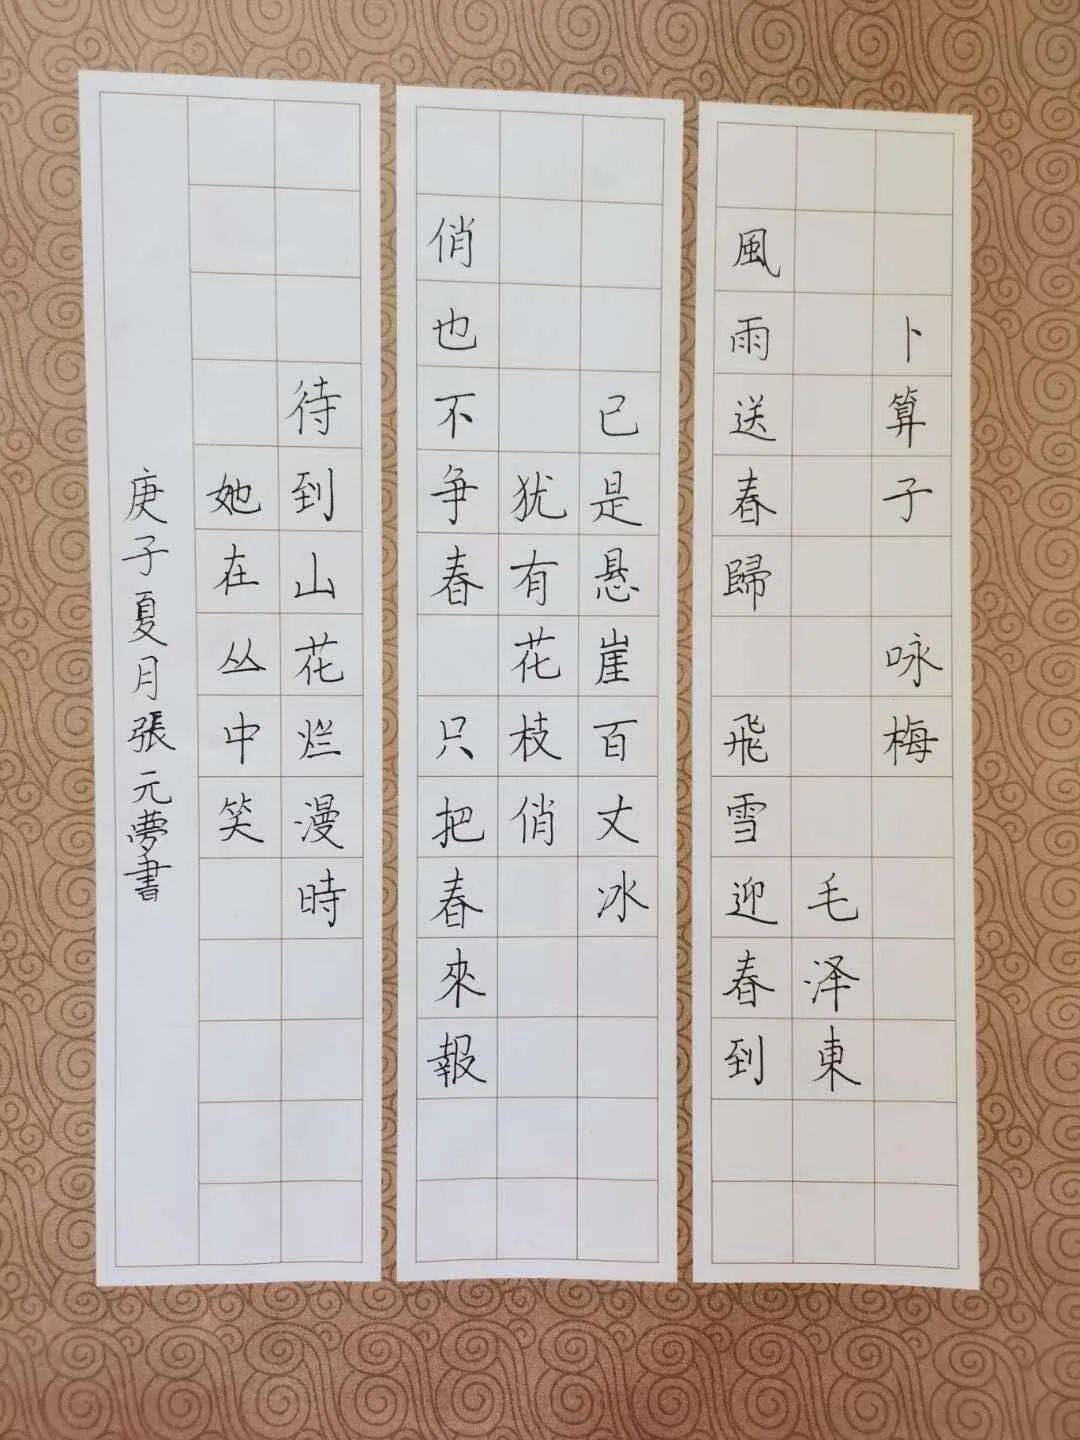 卜算子 咏梅
毛泽東
風雨送春歸 飛雪迎春到
已是悬崖百丈冰
犹有花枝俏
俏也不争春 只把春來報
待到山花烂漫時
她在丛中笑
庚子夏月張元夢書